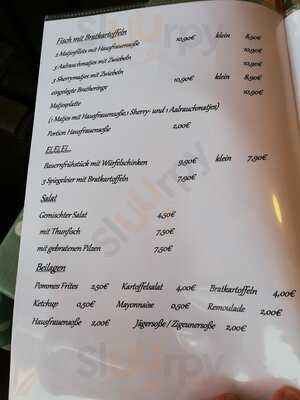 Fisch mit Bratkartoffeln
2 Matjesfilets mit Hausfrauensoße 10,90€ klein 8,90€
3 Aalrauchmatjes mit Zwiebeln 10,90€
3 Sherrymatjes mit Zwiebeln 10,90€
eingelegte Bratheringe 10,90€ klein 8,90€
Matjesplatte 10,90€
(1 Matjes mit Hausfrauensoße,1 Sherry- und 1 Aalrauchmatjes)
Portion Hausfrauensoße 2,00€
EI,EI,EI..
Bauernfrühstück mit Würfelschinken 9,90€ klein 7,90€
3 Spiegeleier mit Bratkartoffeln 7,90€
Salat
Gemischter Salat 4,50€
mit Thunfisch 7,50€
mit gebratenen Pilzen 7,50€
Beilagen
Pommes Frites 2,50€ Kartoffelsalat 4,00€ Bratkartoffeln 4,00€
Ketchup 0,50€ Mayonnaise 0,50€ Remoulade 2,00€
Hausfrauensoße 2,00€ Jägersoße / Zigeunersoße 2,00€
sluurpy